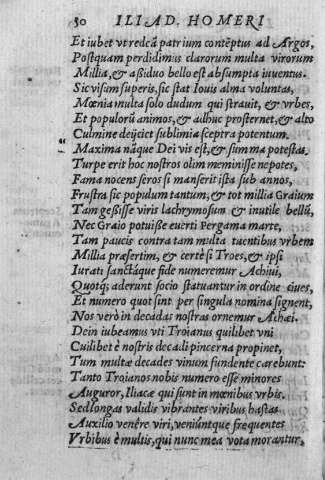 50 ILIAD. HOMERI
Et iubet vt redeã patrium contẽptus ad Argos,
Postquam perdidimus clarorum multa virorum
Millia, & aßiduo bello est absumpta iuuentus.
Sic visum superis, sic stat Iouis alma voluntas,
Mœnia multa solo dudum qui strauit, & vrbes,
Et populorũ animos, & adhuc prosternet, & alto
Culmine deijciet sublimia sceptra potentum.
Maxima nãque Dei vis est, & summa potestas.
Turpe erit hoc nostros olim meminisse nepotes,
Fama nocens seros si manserit ista sub annos,
Frustra sic populum tantum, & tot millia Graium
Tam geßisse viris lachrymosum & inutile bellũ,
Nec Graio potuiße euerti Pergama marte,
Tam paucis contra tam multa tuentibus vrbem
Millia præsertim, & certè si Troes, & ipsi
Iurati sanctáque fide numeremur Achiui,
Quotq; aderunt socio statuantur in ordine ciues,
Et numero quot sint per singula nomina signent,
Nos verò in decadas nostras ornemur Achæi.
Dein iubeamus vti Troianus quilibet vni
Cuilibet è nostris decadi pincerna propinet,
Tum multæ decades vinum fundente carebunt:
Tanto Troianos nobis numero esse minores
Auguror, Iliacæ qui sunt in mœnibus vrbis.
Sed longas validis vibrantes viribus hastas
Auxilio venêre viri, veniúntque frequentes
Vrbibus è multis, qui nunc mea vota morantur,